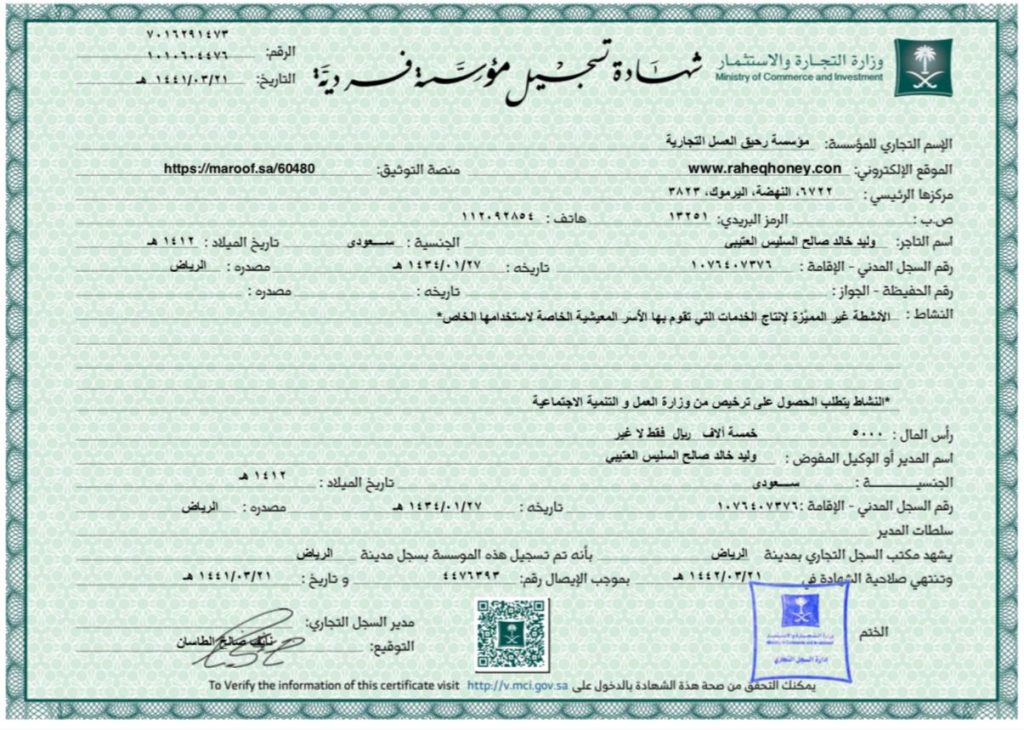 وزارة التجارة والاستثمار
Ministry of Commerce and Investment
شهادة تسجيل مؤسسة فردية
٧٠١٦٢٩١٤٧٣
الرقم: ١٠١٠٦٠٤٤٧٦
التاريخ: ١٤٤١/٠٣/٢١ هـ
الإسم التجاري للمؤسسة: مؤسسة رحيق العسل التجارية
الموقع الإلكتروني: www.raheqhoney.con منصة التوثيق: https://maroof.sa/60480
مركزها الرئيسي: ٦٧٢٢، النهضة، اليرموك، ٣٨٢٣
ص.ب: الرمز البريدي: ١٣٢٥١ هاتف: ١١٢٠٩٢٨٥٤
اسم التاجر: وليد خالد صالح السليس العتيبى الجنسية: سعودى تاريخ الميلاد: ١٤١٢ هـ
رقم السجل المدني - الإقامة: ١٠٧٦٤٠٧٣٧٦ تاريخه: ١٤٣٤/٠١/٢٧ هـ مصدره: الرياض
رقم الحفيظة - الجواز: تاريخه: مصدره:
النشاط: الأنشطة غير المميّزة لإنتاج الخدمات التي تقوم بها الأسر المعيشية الخاصة لاستخدامها الخاص*
*النشاط يتطلب الحصول على ترخيص من وزارة العمل و التنمية الاجتماعية
رأس المال: ٥٠٠٠ خمسة ألاف ريال فقط لا غير
اسم المدير أو الوكيل المفوض: وليد خالد صالح السليس العتيبى
الجنسيـــــــــة: سعودى تاريخ الميلاد: ١٤١٢ هـ
رقم السجل المدني - الإقامة: ١٠٧٦٤٠٧٣٧٦ تاريخه: ١٤٣٤/٠١/٢٧ هـ مصدره: الرياض
سلطات المدير
يشهد مكتب السجل التجاري بمدينة الرياض بأنه تم تسجيل هذه الموسسة بسجل مدينة الرياض
وتنتهي صلاحية الشهادة في ١٤٤٢/٠٣/٢١ هـ بموجب الإيصال رقم: ٤٤٧٦٣٩٣ و تاريخ: ١٤٤١/٠٣/٢١ هـ
الختم
وزارة التجارة والاستثمار
Ministry of Commerce and Investment
إدارة السجل التجاري
مدير السجل التجاري:
التوقيع: نايف صالح الطاسان
يمكنك التحقق من صحة هذة الشهادة بالدخول على http://v.mci.gov.sa To Verify the information of this certificate visit